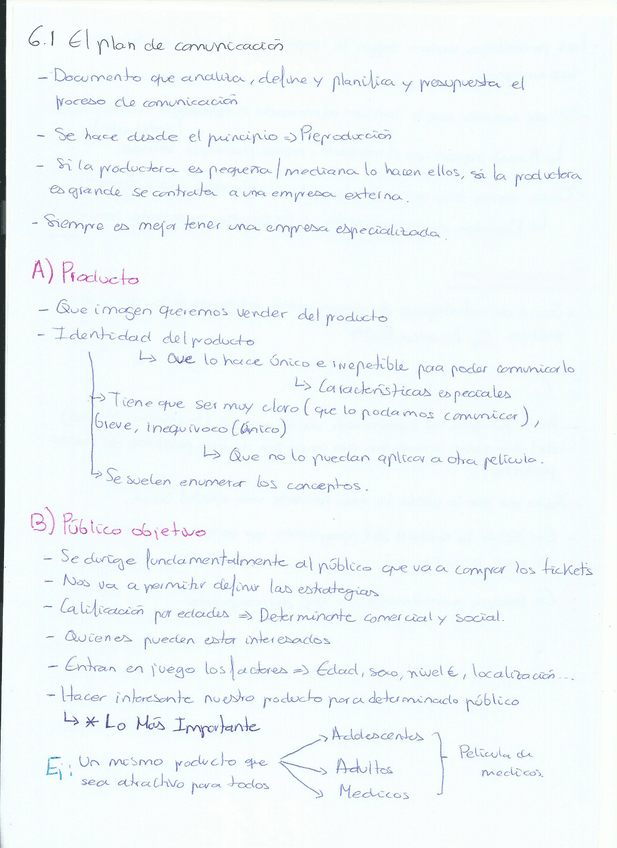 6.1 El plan de comunicación
- Documento que analiza, define y planifica y presupuesta el
proceso de comunicación
- Se hace desde el principio => Preproducción
- Si la productora es pequeña/mediana lo hacen ellos, si la productora
es grande se contrata a una empresa externa.
- Siempre es mejor tener una empresa especializada.
A) Producto
- Que imagen queremos vender del producto
- Identidad del producto
↳ Que lo hace único e irrepetible para poder comunicarlo
↳ Características especiales
→ Tiene que ser muy claro (que lo podamos comunicar),
breve, inequívoco (Único)
↳ Que no lo puedan aplicar a otra película.
↳ Se suelen enumerar los conceptos.
B) Público objetivo
- Se dirige fundamentalmente al público que va a comprar los tickets
- Nos va a permitir definir las estrategias
- Calificación por edades => Determinante comercial y social.
- Quienes pueden estar interesados
- Entran en juego los factores => Edad, sexo, nivel €, localización...
- Hacer interesante nuestro producto para determinado público
↳ * Lo Más Importante
Ej: Un mismo producto que
sea atractivo para todos
→ Adolescentes
→ Adultos
→ Medicos
Pelicula de
medicos